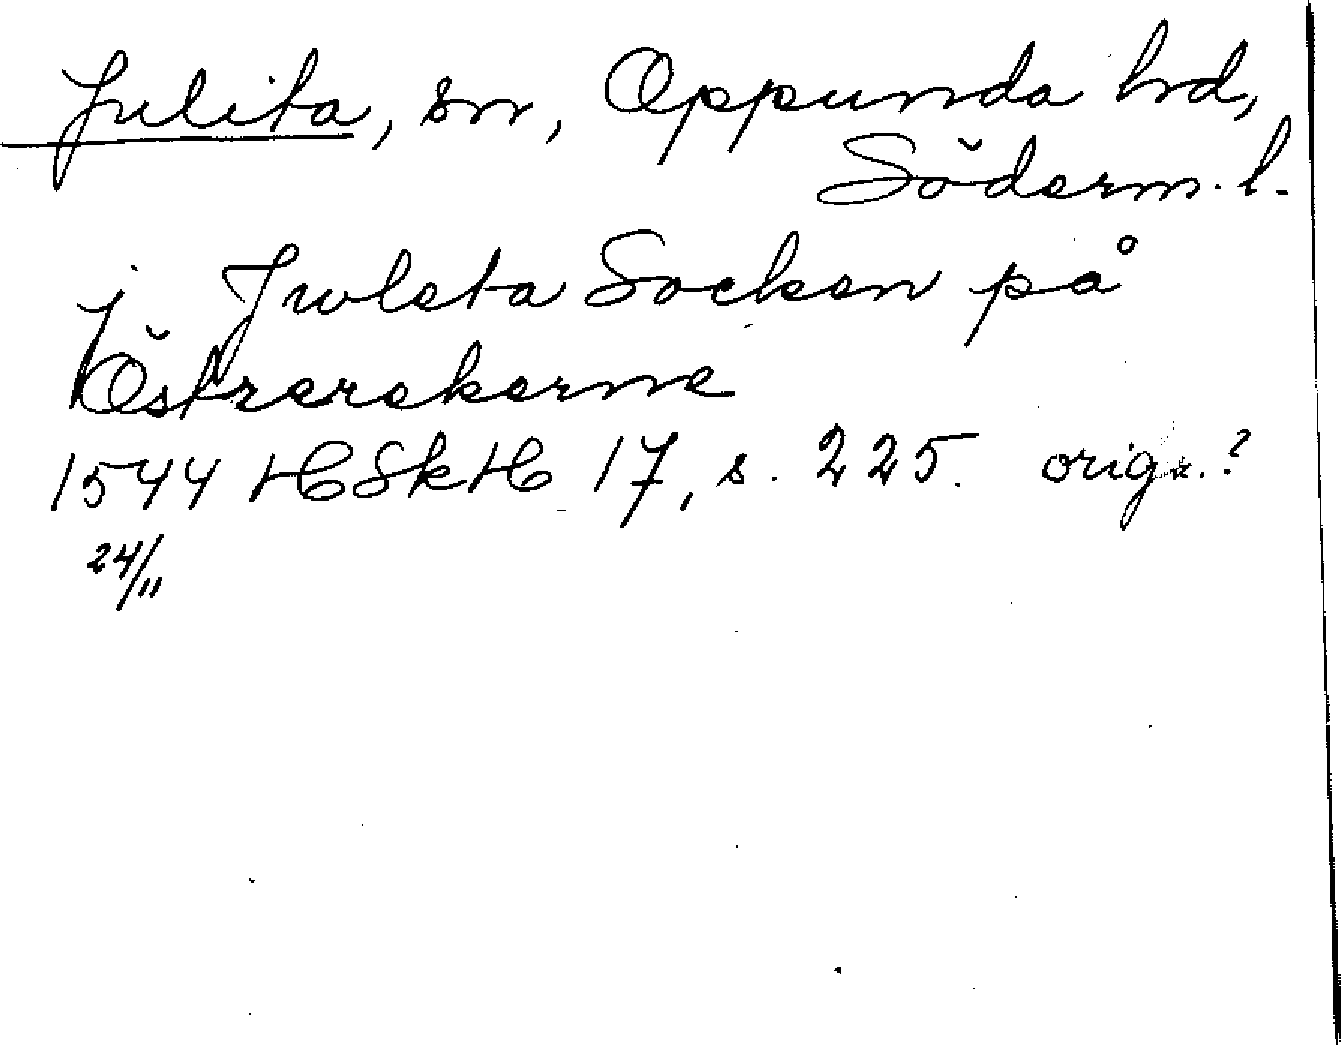 Julita, sn, Oppunda hd,
Söderm. l.
j Jwleta Socken på
Östrerekerne
1544 HSkH 17, s. 225. orig.?
24/11